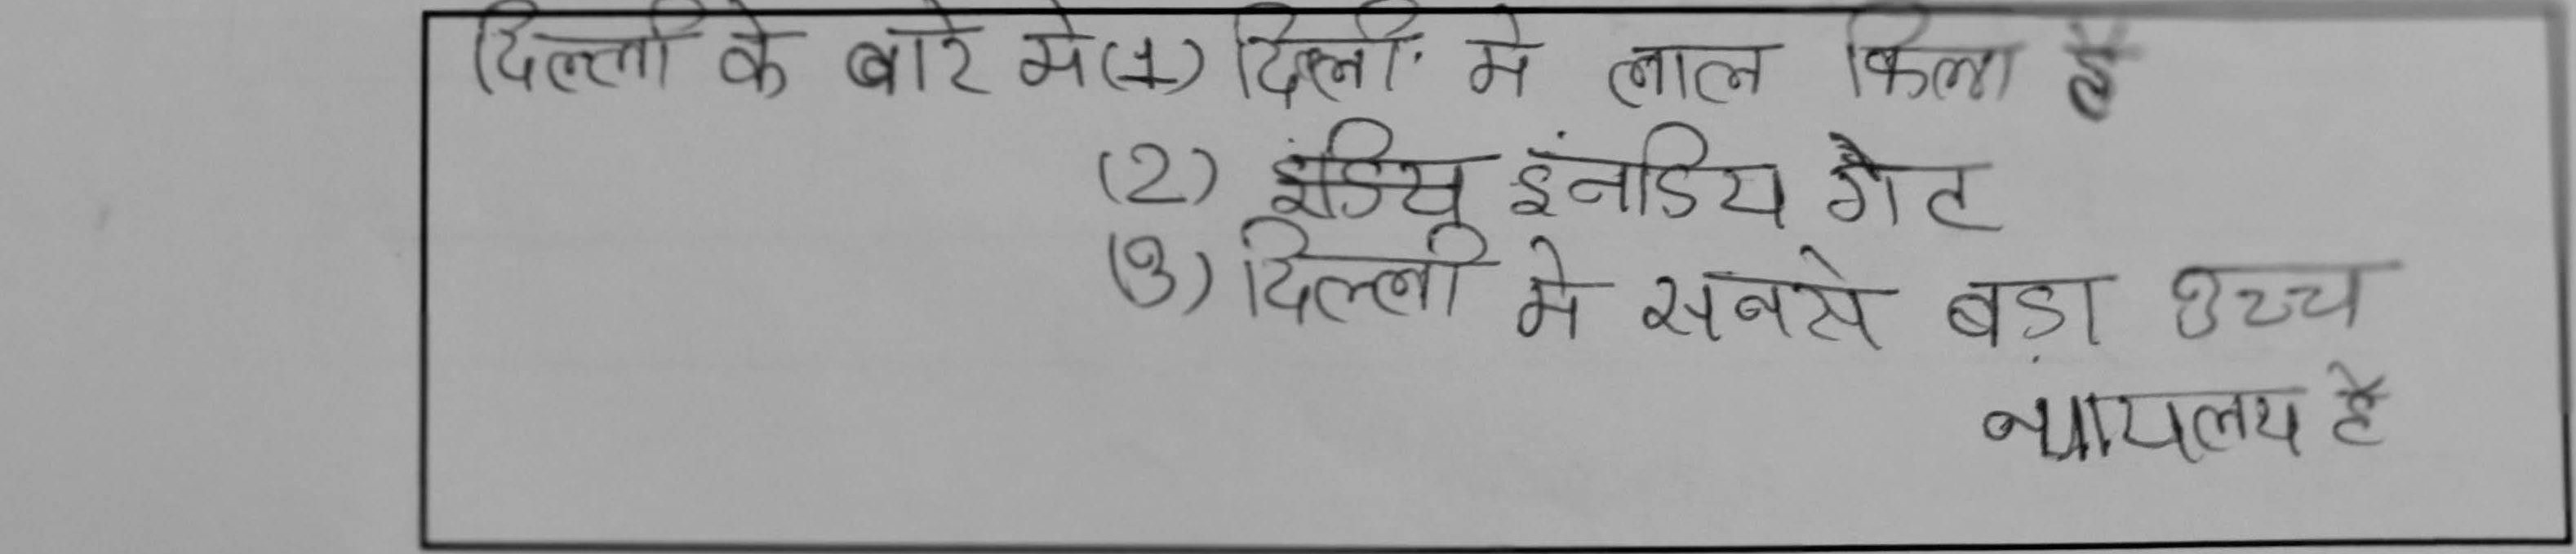 दिल्ली के बारे मे (1) दिल्ली मे लाल किला है
(2) इंडियु इंनडिय गैट
(3) दिल्ली मे सबसे बड़ा उच्च
न्यायलय है